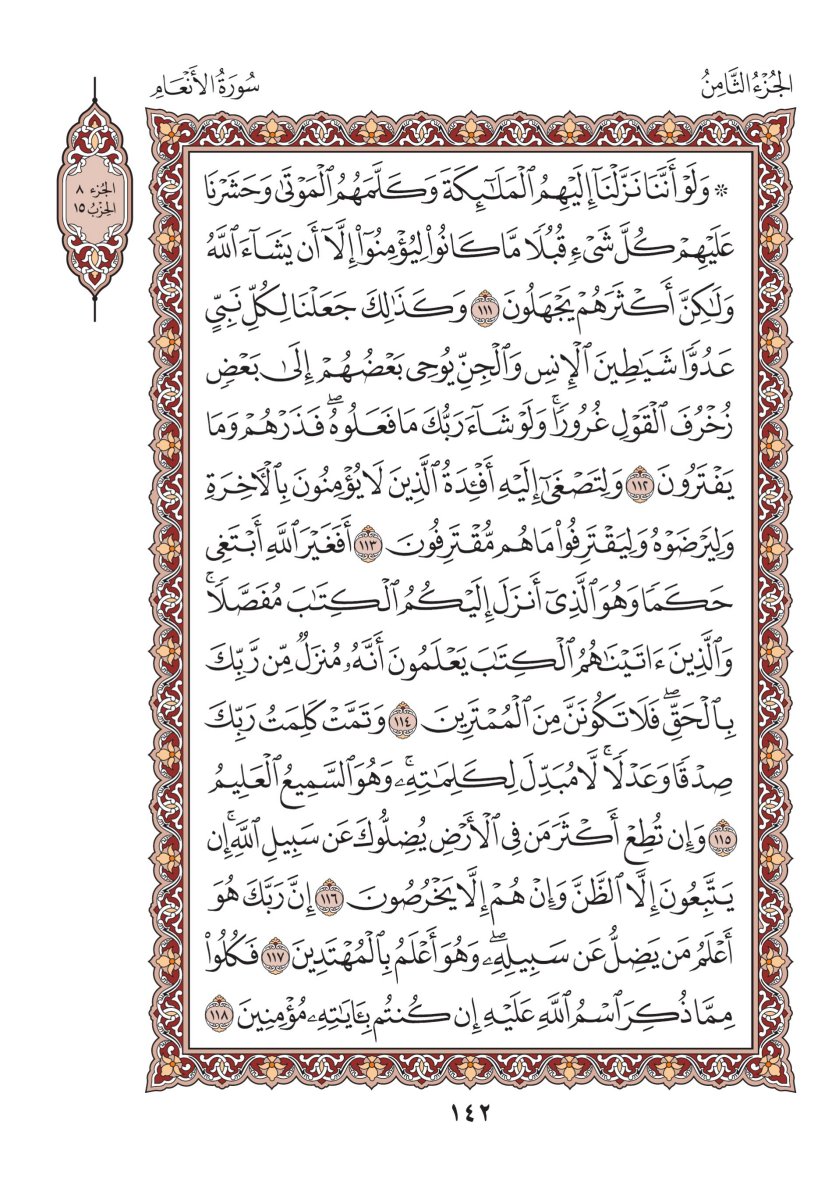 الجُزْءُ الثَّامِنُ
سُورَةُ الأَنْعَامِ
الجُزء ٨
الحِزْبُ ١٥
۞ وَلَوْ أَنَّنَا نَزَّلْنَآ إِلَيْهِمُ ٱلْمَلَٰٓئِكَةَ وَكَلَّمَهُمُ ٱلْمَوْتَىٰ وَحَشَرْنَا
عَلَيْهِمْ كُلَّ شَىْءٍ قُبُلًا مَّا كَانُوا۟ لِيُؤْمِنُوٓا۟ إِلَّآ أَن يَشَآءَ ٱللَّهُ
وَلَٰكِنَّ أَكْثَرَهُمْ يَجْهَلُونَ ١١١ وَكَذَٰلِكَ جَعَلْنَا لِكُلِّ نَبِىٍّ
عَدُوًّا شَيَٰطِينَ ٱلْإِنسِ وَٱلْجِنِّ يُوحِى بَعْضُهُمْ إِلَىٰ بَعْضٍ
زُخْرُفَ ٱلْقَوْلِ غُرُورًا ۚ وَلَوْ شَآءَ رَبُّكَ مَا فَعَلُوهُ ۖ فَذَرْهُمْ وَمَا
يَفْتَرُونَ ١١٢ وَلِتَصْغَىٰٓ إِلَيْهِ أَفْـِٔدَةُ ٱلَّذِينَ لَا يُؤْمِنُونَ بِٱلْـَٔاخِرَةِ
وَلِيَرْضَوْهُ وَلِيَقْتَرِفُوا۟ مَا هُم مُّقْتَرِفُونَ ١١٣ أَفَغَيْرَ ٱللَّهِ أَبْتَغِى
حَكَمًا وَهُوَ ٱلَّذِىٓ أَنزَلَ إِلَيْكُمُ ٱلْكِتَٰبَ مُفَصَّلًا ۚ
وَٱلَّذِينَ ءَاتَيْنَٰهُمُ ٱلْكِتَٰبَ يَعْلَمُونَ أَنَّهُۥ مُنَزَّلٌ مِّن رَّبِّكَ
بِٱلْحَقِّ ۖ فَلَا تَكُونَنَّ مِنَ ٱلْمُمْتَرِينَ ١١٤ وَتَمَّتْ كَلِمَتُ رَبِّكَ
صِدْقًا وَعَدْلًا ۚ لَّا مُبَدِّلَ لِكَلِمَٰتِهِۦ ۚ وَهُوَ ٱلسَّمِيعُ ٱلْعَلِيمُ
١١٥ وَإِن تُطِعْ أَكْثَرَ مَن فِى ٱلْأَرْضِ يُضِلُّوكَ عَن سَبِيلِ ٱللَّهِ ۚ إِن
يَتَّبِعُونَ إِلَّا ٱلظَّنَّ وَإِنْ هُمْ إِلَّا يَخْرُصُونَ ١١٦ إِنَّ رَبَّكَ هُوَ
أَعْلَمُ مَن يَضِلُّ عَن سَبِيلِهِۦ ۖ وَهُوَ أَعْلَمُ بِٱلْمُهْتَدِينَ ١١٧ فَكُلُوا۟
مِمَّا ذُكِرَ ٱسْمُ ٱللَّهِ عَلَيْهِ إِن كُنتُم بِـَٔايَٰتِهِۦ مُؤْمِنِينَ ١١٨
١٤٢